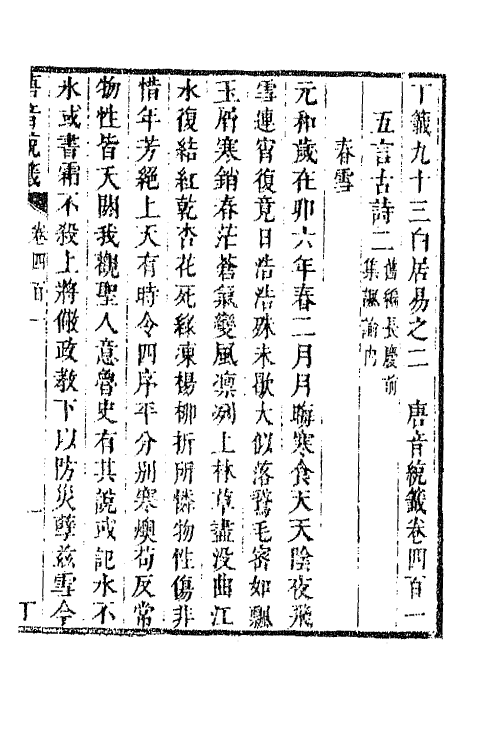 丁籖九十三白居易之二　唐音統籖卷四百一
五言古詩二舊編長慶前集諷諭內
春雪
元和歲在卯六年春二月月晦寒食天天陰夜飛
雪連宵復竟日浩浩殊未歇大似落鵞毛密如飄
玉屑寒銷春茫蒼氣變風凛冽上林草盡没曲江
水復結紅乾杏花死綠凍楊柳折所憐物性傷非
惜年芳絕上天有時令四序平分别寒燠苟反常
物性皆夭閼我觀聖人意魯史有其說或記水不
氷或書霜不殺上將儆政教下以防災孽兹雪今
唐音統籖　卷四百一　一　丁